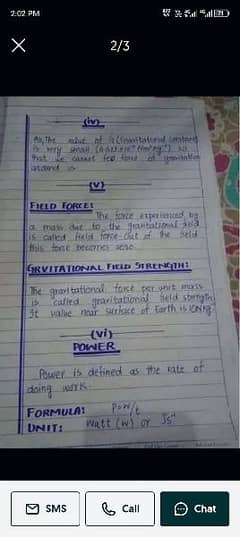 2:02 PM
2/3
(iv)
As, The value of G (Gravitational constant)
is very small
that we cannot feel force of gravitation
around us
(v)
FIELD FORCE:
The force experienced by
a mass due to the gravitational field
is called field force. Out of the field
this force becomes zero.
GRVITATIONAL FIELD STRENGTH:
The gravitational force per unit mass
is called gravitational field strength
It value near surface of Earth is 10Nkg⁻¹
(vi)
POWER
Power is defined as the rate of
doing work.
FORMULA: P=W/t
UNIT: Watt (W) or Js⁻¹
SMS
Call
Chat